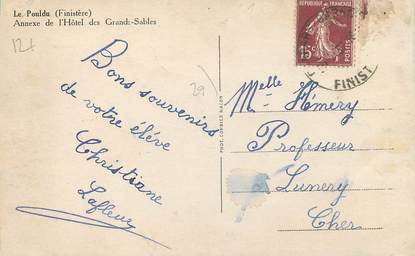 Le Pouldu (Finistère)
Annexe de l'Hôtel des Grands-Sables
12+
29
Bons souvenirs
de votre élève
Christiane
Lafleur
RÉPUBLIQUE FRANÇAISE
15c
POSTES
FINIST
Melle Hémery
Professeur
Lunery
Cher